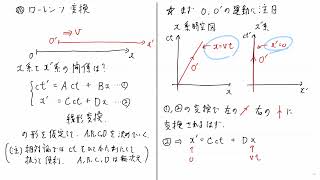 ◎ ローレンツ変換
O' → v
O
x'
x
x系とx'系の関係は?
ct' = Act + Bx …①
x' = Cct + Dx …②
線形変換
の形を仮定して、A,B,C,Dを決めていく。
(注) 相対論ではctをひとかたまりとして
扱うと便利。A,B,C,Dは無次元)
☆ まず O, O'の運動に注目
x系時空図
x'系〃
ct
O'
x=vt
x
ct'
O'
x'=0
x'
①,②の変換で左の↗が右の↑に
変換されるはず。
② ⇒ x' = Cct + Dx
0
vt